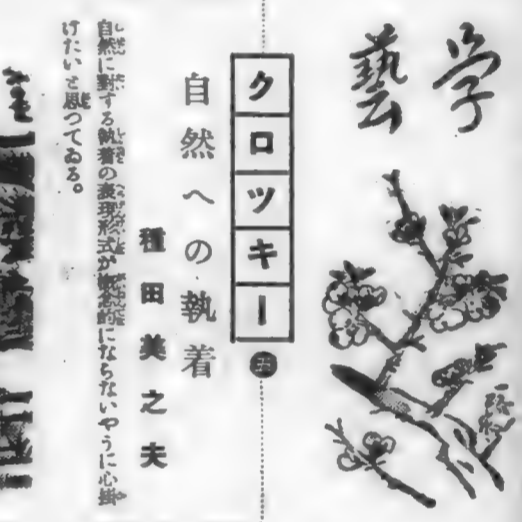 学藝
クロツキー 五
自然への執着
種田美之夫
自然に對する執着の表現形式が概念的にならないやうに心掛
けたいと思つてゐる。